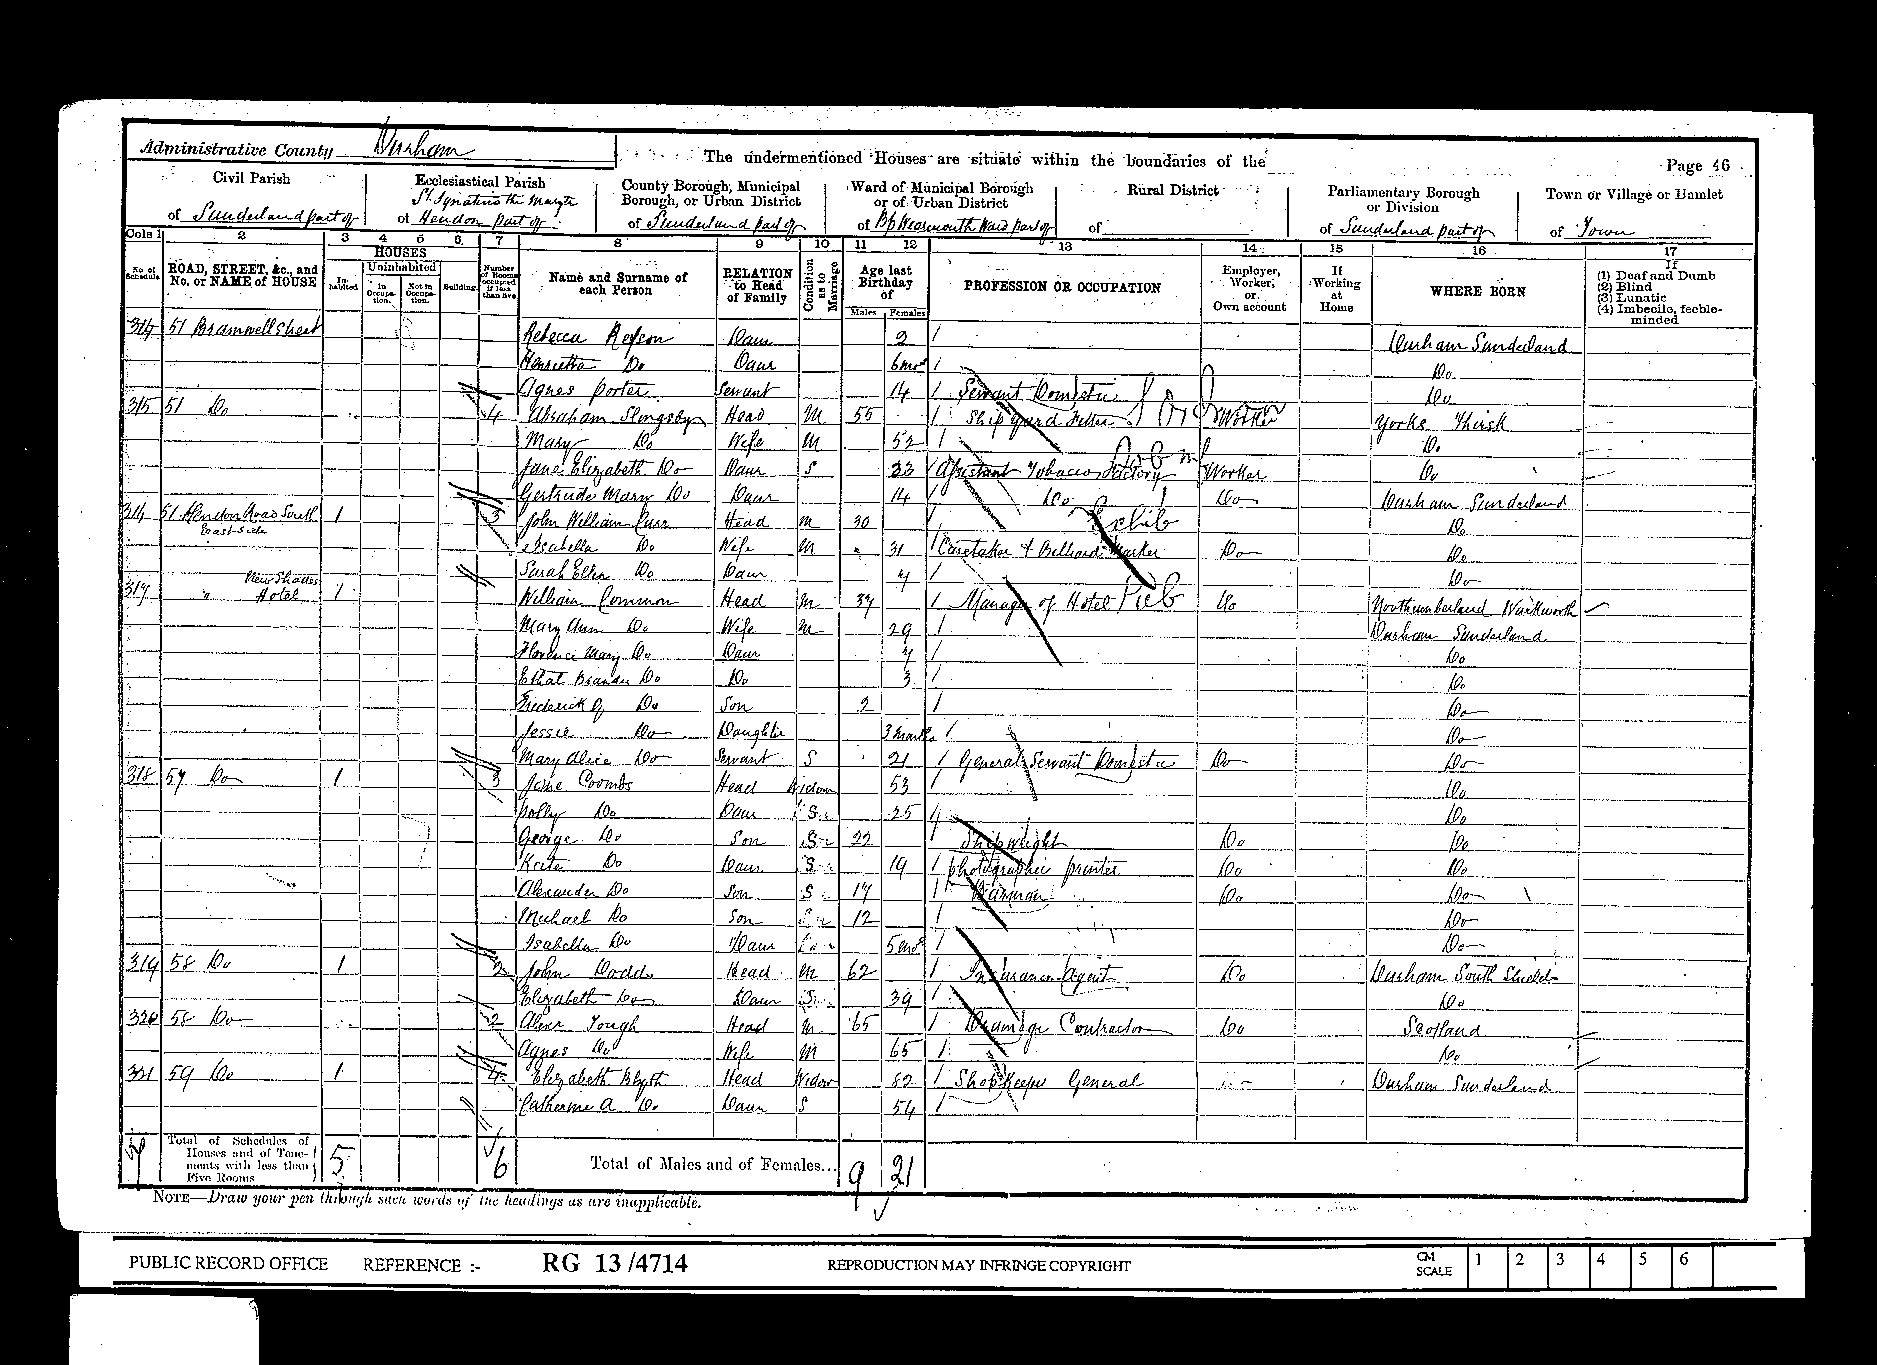 Administrative County Durham
The undermentioned Houses are situate within the boundaries of the
Page 46
Civil Parish
of Sunderland part of
Ecclesiastical Parish
St. Ignatius the Martyr
of Hendon part of
County Borough, Municipal Borough, or Urban District
of Sunderland part of
Ward of Municipal Borough or of Urban District
of Bp Wearmouth Ward part of
Rural District
of
Parliamentary Borough or Division
of Sunderland part of
Town or Village or Hamlet
of Town
Cols 1 2 3 4 5 6 7 8 9 10 11 12 13 14 15 16 17
No. of Schedule
ROAD, STREET, &c., and No. or NAME of HOUSE
HOUSES
Inhabited
Uninhabited
In Occupation.
Not in Occupation.
Building.
Number of Rooms occupied if less than five
Name and Surname of each Person
RELATION to Head of Family
Condition as to Marriage
Age last Birthday of
Males Females
PROFESSION OR OCCUPATION
Employer, Worker, or Own account
If Working at Home
WHERE BORN
If (1) Deaf and Dumb (2) Blind (3) Lunatic (4) Imbecile, feeble-minded
314 51 Bramwell Street Rebecca Daur 2 Durham Sunderland
Henrietta Do Daur 6 mos Do
Agnes Porter Servant 14 Servant Domestic Do
315 51 Do 4 Abraham Slingsby Head M 55 Ship Yard Fitter Worker Yorks Thirsk
Mary Do Wife M 52 Do
Jane Elizabeth Do Daur S 23 Assistant Tobacco Factory Worker Do
Gertrude Mary Do Daur 14 Do Do Durham Sunderland
316 51 Hendon Road South East Side 1 3 John William Head M 30 Do
Isabella Do Wife M 31 Caretaker & Billiard Marker Do Do
Sarah Ellen Do Daur 4 Do
317 " New Shades Hotel 1 William Common Head M 37 Manager of Hotel Pub Do Northumberland Warkworth
Mary Ann Do Wife M 29 Durham Sunderland
Florence Mary Do Daur 4 Do
Do Do 3 Do
Frederick G Do Son 2 Do
Jessie Do Daughter 3 Do
Mary Alice Do Servant S 21 General Servant Domestic Do Do
318 57 Do 1 3 Jane Coombs Head Widow 53 Do
Polly Do Daur S 25 Do
George Do Son S 22 Shipwright Do Do
Kate Do Daur S 19 Photographic printer Do Do
Alexander Do Son S 17 Barman Do Do
Michael Do Son 12 Do
Isabella Do Daur 5 mos Do
319 58 Do 1 2 John Dodd Head M 62 Insurance Agent Do Durham South Shields
Elizabeth Do Daur S 39 Do
320 58 Do 2 Alexr Tough Head M 65 Drainage Contractor Do Scotland
Agnes Do Wife M 65 Do
321 59 Do 1 4 Elizabeth Blyth Head Widow 82 Shopkeeper General Durham Sunderland
Catherine A Do Daur S 54
Total of Schedules of Houses and of Tenements with less than Five Rooms 5 6 Total of Males and of Females... 9 21
NOTE—Draw your pen through such words of the headings as are inapplicable.
PUBLIC RECORD OFFICE REFERENCE :- RG 13/4714 REPRODUCTION MAY INFRINGE COPYRIGHT CM SCALE 1 2 3 4 5 6